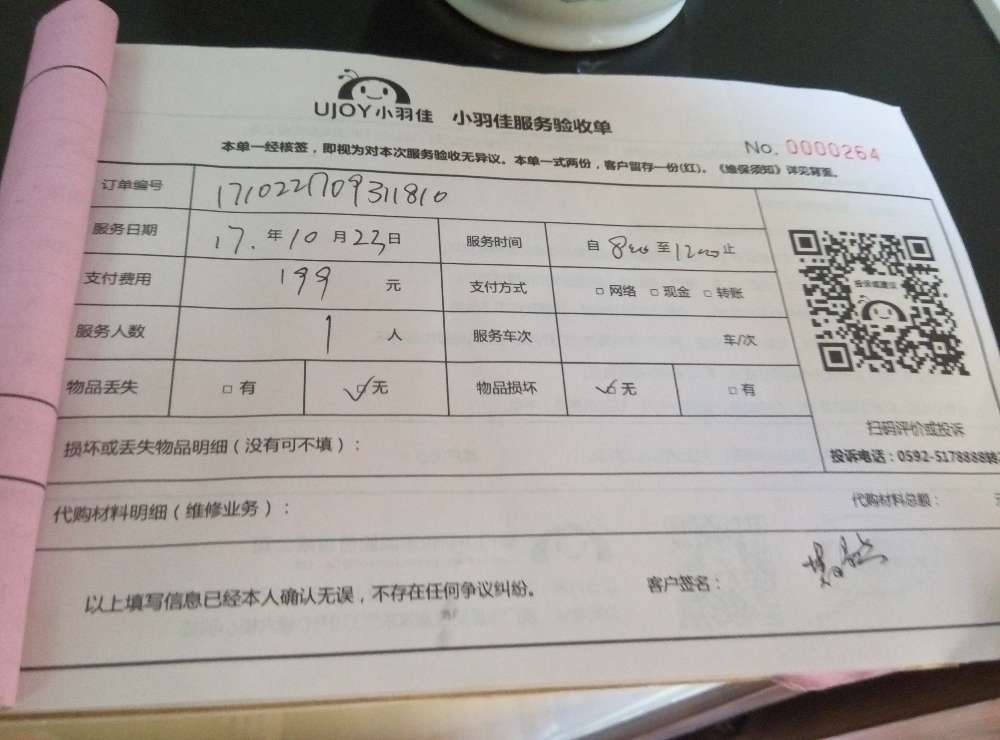 UJOY小羽佳 小羽佳服务验收单
No. 0000264
本单一经核签，即视为对本次服务验收无异议。本单一式两份，客户留存一份(红)。《维保须知》详见背面。
订单编号 1710221709311810
服务日期 17. 年 10 月 23 日 服务时间 自 8:00 至 12:00 止
支付费用 199 元 支付方式 □ 网络 □ 现金 □ 转账
服务人数 1 人 服务车次 车/次
物品丢失 □ 有 ☑ 无 物品损坏 ☑ 无 □ 有
投诉或建议
扫码评价或投诉
投诉电话：0592-5178888转
损坏或丢失物品明细（没有可不填）：
代购材料明细（维修业务）： 代购材料总额：
以上填写信息已经本人确认无误，不存在任何争议纠纷。 客户签名：